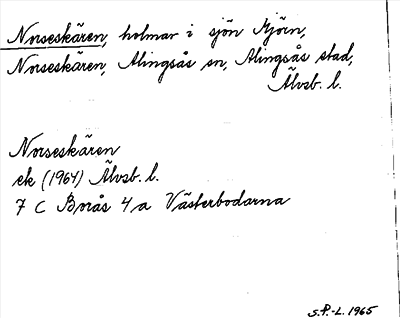 Norseskären, holmar i sjön Mjörn,
Norseskären, Alingsås sn, Alingsås stad,
Älvsb. l.
Norseskären
ek (1964) Älvsb. l.
7 C Borås 4 a Västerbodarna
S.P.-L. 1965